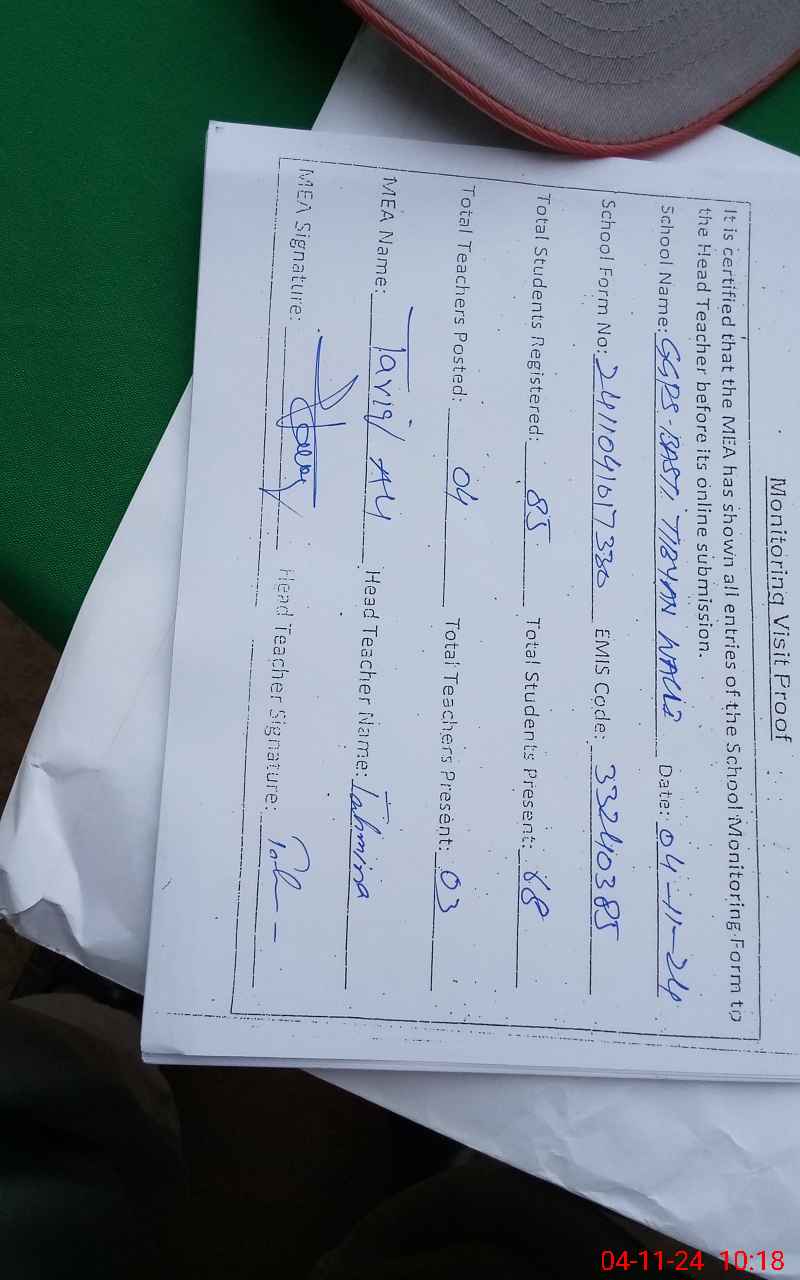 Monitoring Visit Proof
It is certified that the MEA has shown all entries of the School Monitoring Form to
the Head Teacher before its online submission.
School Name: GGPS-BASTI TIBYAN WALI Date: 04-11-24
School Form No: 2411041017330 EMIS Code: 33240385
Total Students Registered: 85 Total Students Present: 68
Total Teachers Posted: 04 Total Teachers Present: 03
MEA Name: Tariq Ali Head Teacher Name: Tahmina
MEA Signature: Head Teacher Signature:
04-11-24 10:18